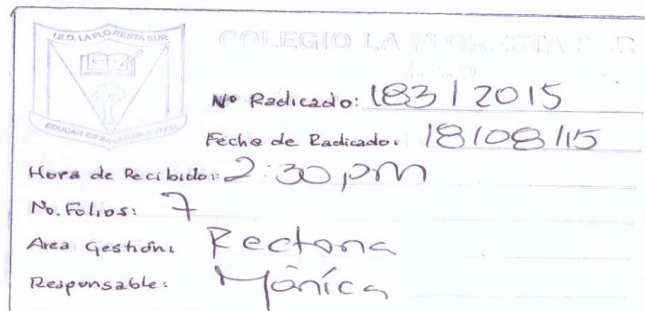 I.E.D. LA FLORESTA SUR
COLEGIO LA FLORESTA SUR
Nº Radicado: 183 / 2015
Fecha de Radicado: 18/08/15
Hora de Recibido: 2:30 pm
No. Folios: 7
Area Gestión: Rectoria
Responsable: Mónica